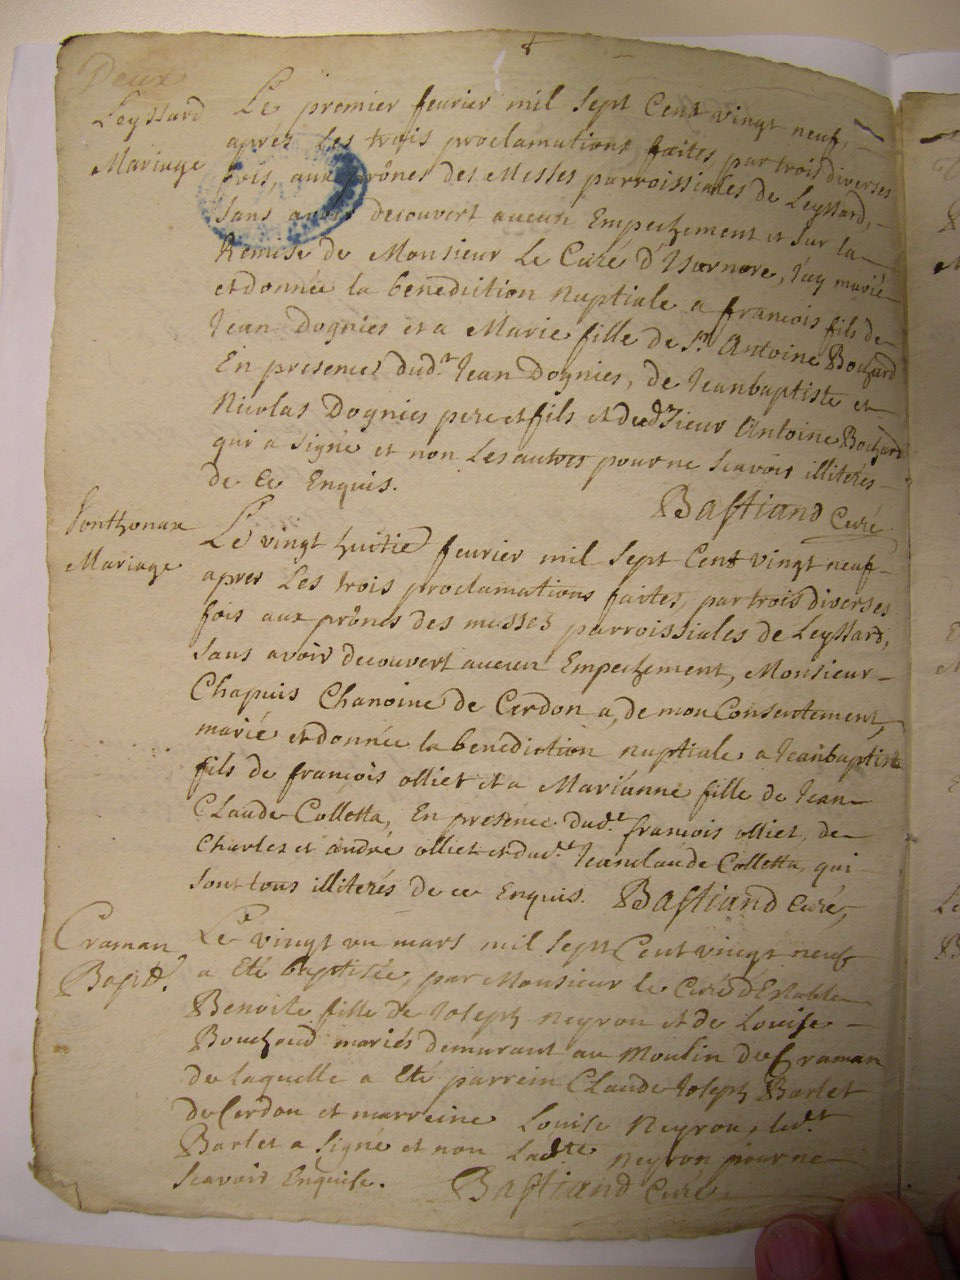 Deux
Leyssard
Mariage
Le premier feurier mil sept Cent vingt neuf,
aprés Les trois proclamations faites par trois diverses
fois, aux prônes des Messes parroissiales de Leyssard,
sans avoir decouvert aucun Empechement et sur la
Remise de Monsieur Le Curé d'Isernore, J'ay marié
et donnée la benediction Nuptiale a françois fils de
Jean Dognies et a Marie fille de Sr. Antoine Bochard
En presence dudt. Jean Dognies, de Jeanbaptiste et
Nicolas Dognies pere et fils et dudt sieur Antoine Bochard
qui a signé et non Les autres pour ne scavoir illiterés
de Ce Enquis.
Bastiand Curé
Ponthonax
Mariage
Le vingt huitie feurier mil sept Cent vingt neuf
apres Les trois proclamations faites, par trois diverses
fois aux prônes des messes parroissiales de Leyssard,
sans avoir decouvert aucun Empechement, Monsieur
Chapuis Chanoine de Cerdon a, de mon Consentement,
marié et donnée la benediction nuptiale a Jeanbaptiste
fils de françois olliet et a Marianne fille de Jean
Claude Colletta, En presence dudt. françois olliet, de
Charles et andré olliet et dudt. Jeanclaude Colletta, qui
sont tous illiterés de ce Enquis. Bastiand Curé,
Craman
Bapt.
Le vingt un mars mil sept Cent vingt neuf
a Eté baptisée, par Monsieur le Curé d'Estables
Benoite fille de Joseph neyron et de Louise
Bouchoud mariés demurant au Moulin de Craman
de laquelle a Eté parrein Claude Joseph Barlet
de Cerdon et marreine Louise Neyron, Ledt.
Barlet a signé et non Ladte neyron pour ne
scavoir Enquise.
Bastiand Curé